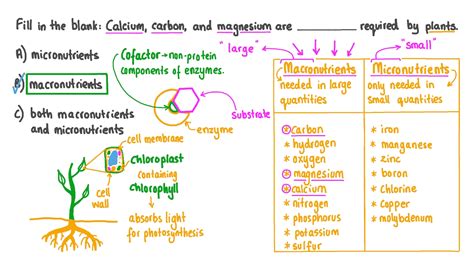 Fill in the blank: Calcium, carbon, and magnesium are ________ required by plants.
"large"
"small"
A) micronutrients
B) macronutrients
C) both macronutrients
and micronutrients
Cofactor→non-protein
components of enzymes.
substrate
enzyme
cell membrane
Chloroplast
containing
chlorophyll
cell
wall
absorbs light
for photosynthesis
Macronutrients
needed in large
quantities
* carbon
* hydrogen
* oxygen
* magnesium
* calcium
* nitrogen
* phosphorus
* potassium
* sulfur
Micronutrients
only needed in
small quantities
* iron
* manganese
* zinc
* boron
* chlorine
* copper
* molybdenum